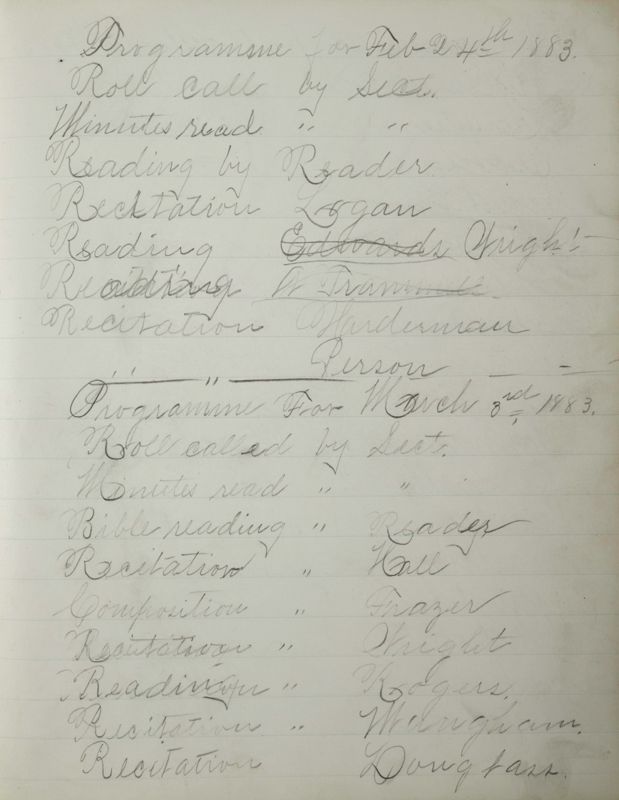 Programme for Feb 24th 1883.
Roll call by Sect.
Minutes read " "
Reading by Reader
Recitation Logan
Reading Edwards Wright
Reciting W Trammell
Recitation Harderman
" " Person
Programme For March 3rd, 1883.
Roll called by Sect.
Minutes read " "
Bible reading " Reader
Recitation " Hall
Composition " Frazer
Recitation " Wright
Reading " Rogers.
Recitation " Mangham.
Recitation Douglass.